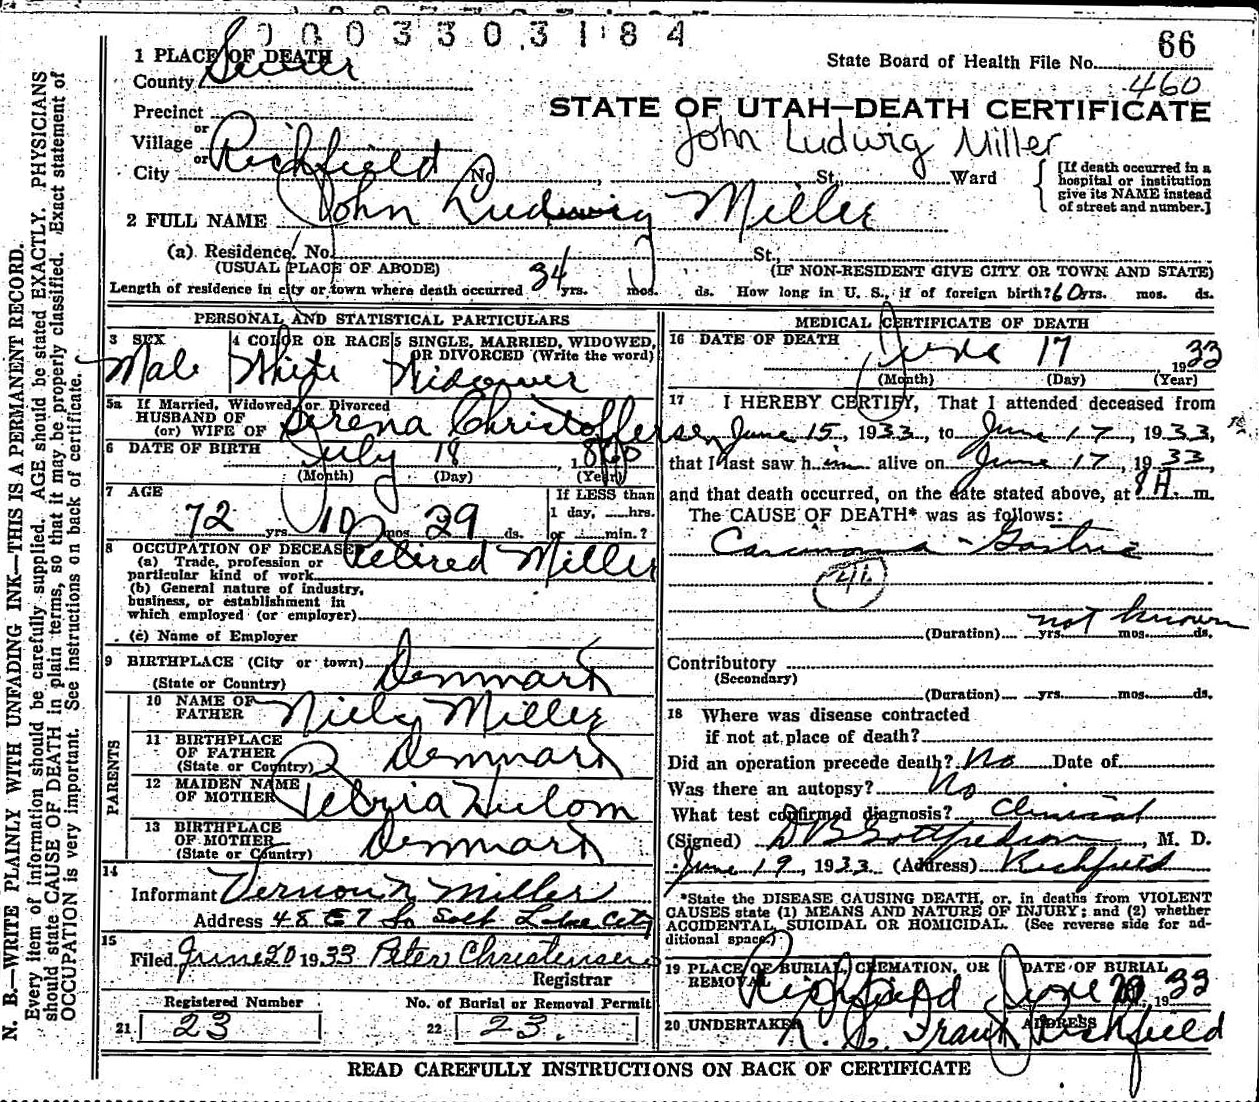 0 0 0 3 3 0 3 1 8 4
66
State Board of Health File No.
460
1 PLACE OF DEATH
County Sevier
STATE OF UTAH—DEATH CERTIFICATE
Precinct
or
Village
or
City Richfield No. St., Ward
John Ludwig Miller
[If death occurred in a hospital or institution give its NAME instead of street and number.]
2 FULL NAME John Ludwig Miller
(a) Residence. No. St.,
(USUAL PLACE OF ABODE) (IF NON-RESIDENT GIVE CITY OR TOWN AND STATE)
Length of residence in city or town where death occurred 34 yrs. mos. ds. How long in U. S., if of foreign birth? 60 yrs. mos. ds.
PERSONAL AND STATISTICAL PARTICULARS
3 SEX Male
4 COLOR OR RACE White
5 SINGLE, MARRIED, WIDOWED, OR DIVORCED (Write the word) Widower
5a If Married, Widowed, or Divorced
HUSBAND OF
(or) WIFE OF Serena Christoffersen
6 DATE OF BIRTH July 18 1860
(Month) (Day) (Year)
7 AGE
72 yrs. 10 mos. 29 ds.
If LESS than
1 day, hrs.
or min.?
8 OCCUPATION OF DECEASED
(a) Trade, profession or
particular kind of work Retired Miller
(b) General nature of industry,
business, or establishment in
which employed (or employer)
(c) Name of Employer
9 BIRTHPLACE (City or town)
(State or Country) Denmark
PARENTS
10 NAME OF FATHER Niels Miller
11 BIRTHPLACE OF FATHER (State or Country) Denmark
12 MAIDEN NAME OF MOTHER
13 BIRTHPLACE OF MOTHER (State or Country) Denmark
14
Informant Vernon N Miller
Address 48 E 7 So Salt Lake City
15
Filed June 20 1933 Peter Christensen
Registrar
Registered Number No. of Burial or Removal Permit
21 23 22 23.
MEDICAL CERTIFICATE OF DEATH
16 DATE OF DEATH June 17 1933
(Month) (Day) (Year)
17 I HEREBY CERTIFY, That I attended deceased from
June 15, 1933, to June 17, 1933,
that I last saw him alive on June 17, 1933
and that death occurred, on the date stated above, at 8 A. m.
The CAUSE OF DEATH* was as follows:
Carcinoma - Gastric
(Duration) yrs. mos. ds. not known
Contributory
(Secondary)
(Duration) yrs. mos. ds.
18 Where was disease contracted
if not at place of death?
Did an operation precede death? No Date of
Was there an autopsy? No
What test confirmed diagnosis? Clinical
(Signed) D B Gottfredson, M. D.
June 19, 1933 (Address) Richfield
*State the DISEASE CAUSING DEATH, or, in deaths from VIOLENT
CAUSES state (1) MEANS AND NATURE OF INJURY; and (2) whether
ACCIDENTAL, SUICIDAL OR HOMICIDAL. (See reverse side for ad-
ditional space.)
19 PLACE OF BURIAL, CREMATION, OR REMOVAL Richfield
DATE OF BURIAL June 20, 1933
20 UNDERTAKER
ADDRESS Richfield
READ CAREFULLY INSTRUCTIONS ON BACK OF CERTIFICATE
N. B.—WRITE PLAINLY WITH UNFADING INK—THIS IS A PERMANENT RECORD.
Every item of information should be carefully supplied. AGE should be stated EXACTLY. PHYSICIANS
should state CAUSE OF DEATH in plain terms, so that it may be properly classified. Exact statement of
OCCUPATION is very important. See instructions on back of certificate.